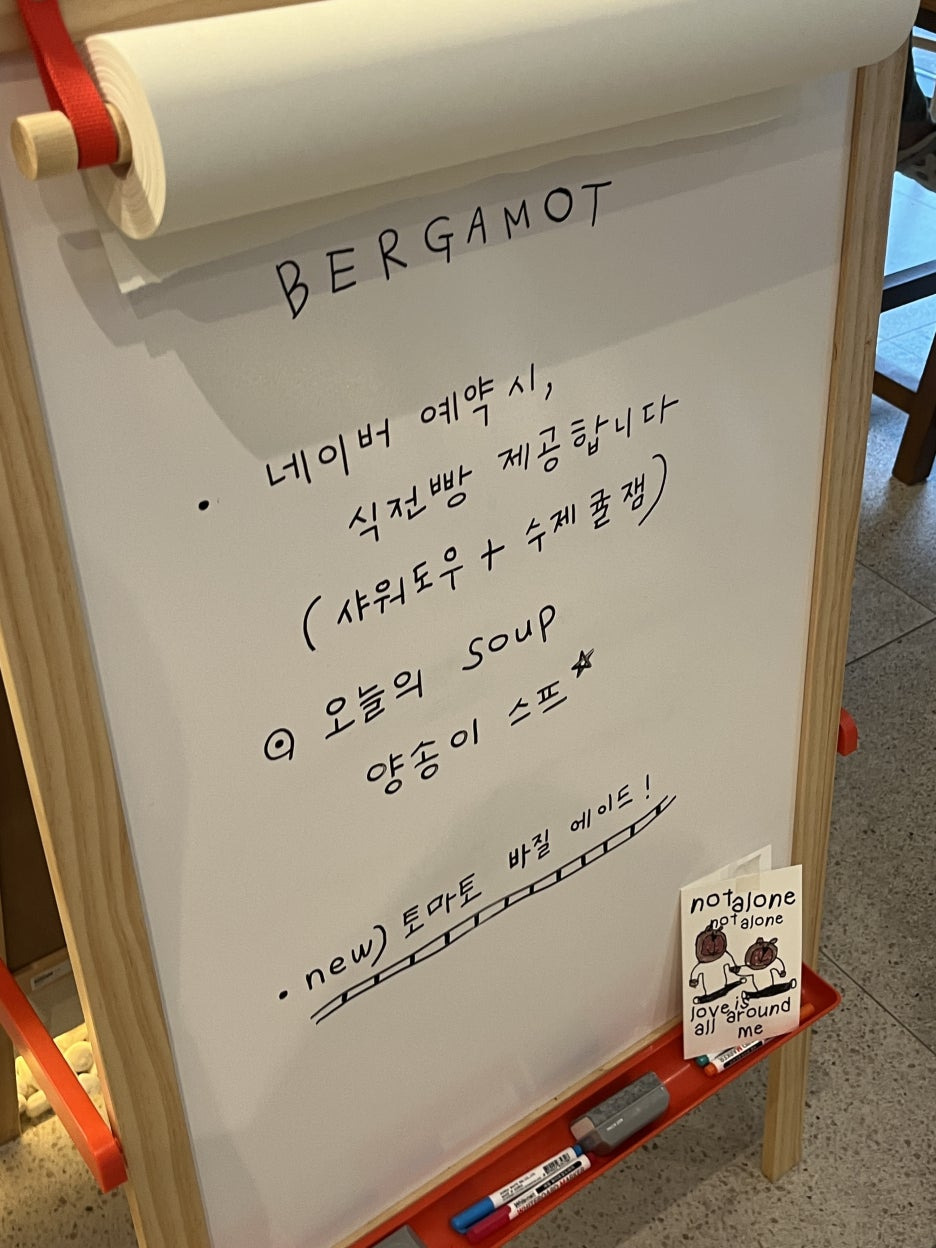 BERGAMOT
• 네이버 예약 시,
식전빵 제공합니다
(샤워도우 + 수제 귤잼)
⊙ 오늘의 soup
양송이 스프☆
• new) 토마토 바질 에이드!
not alone
not alone
love is
all around
me